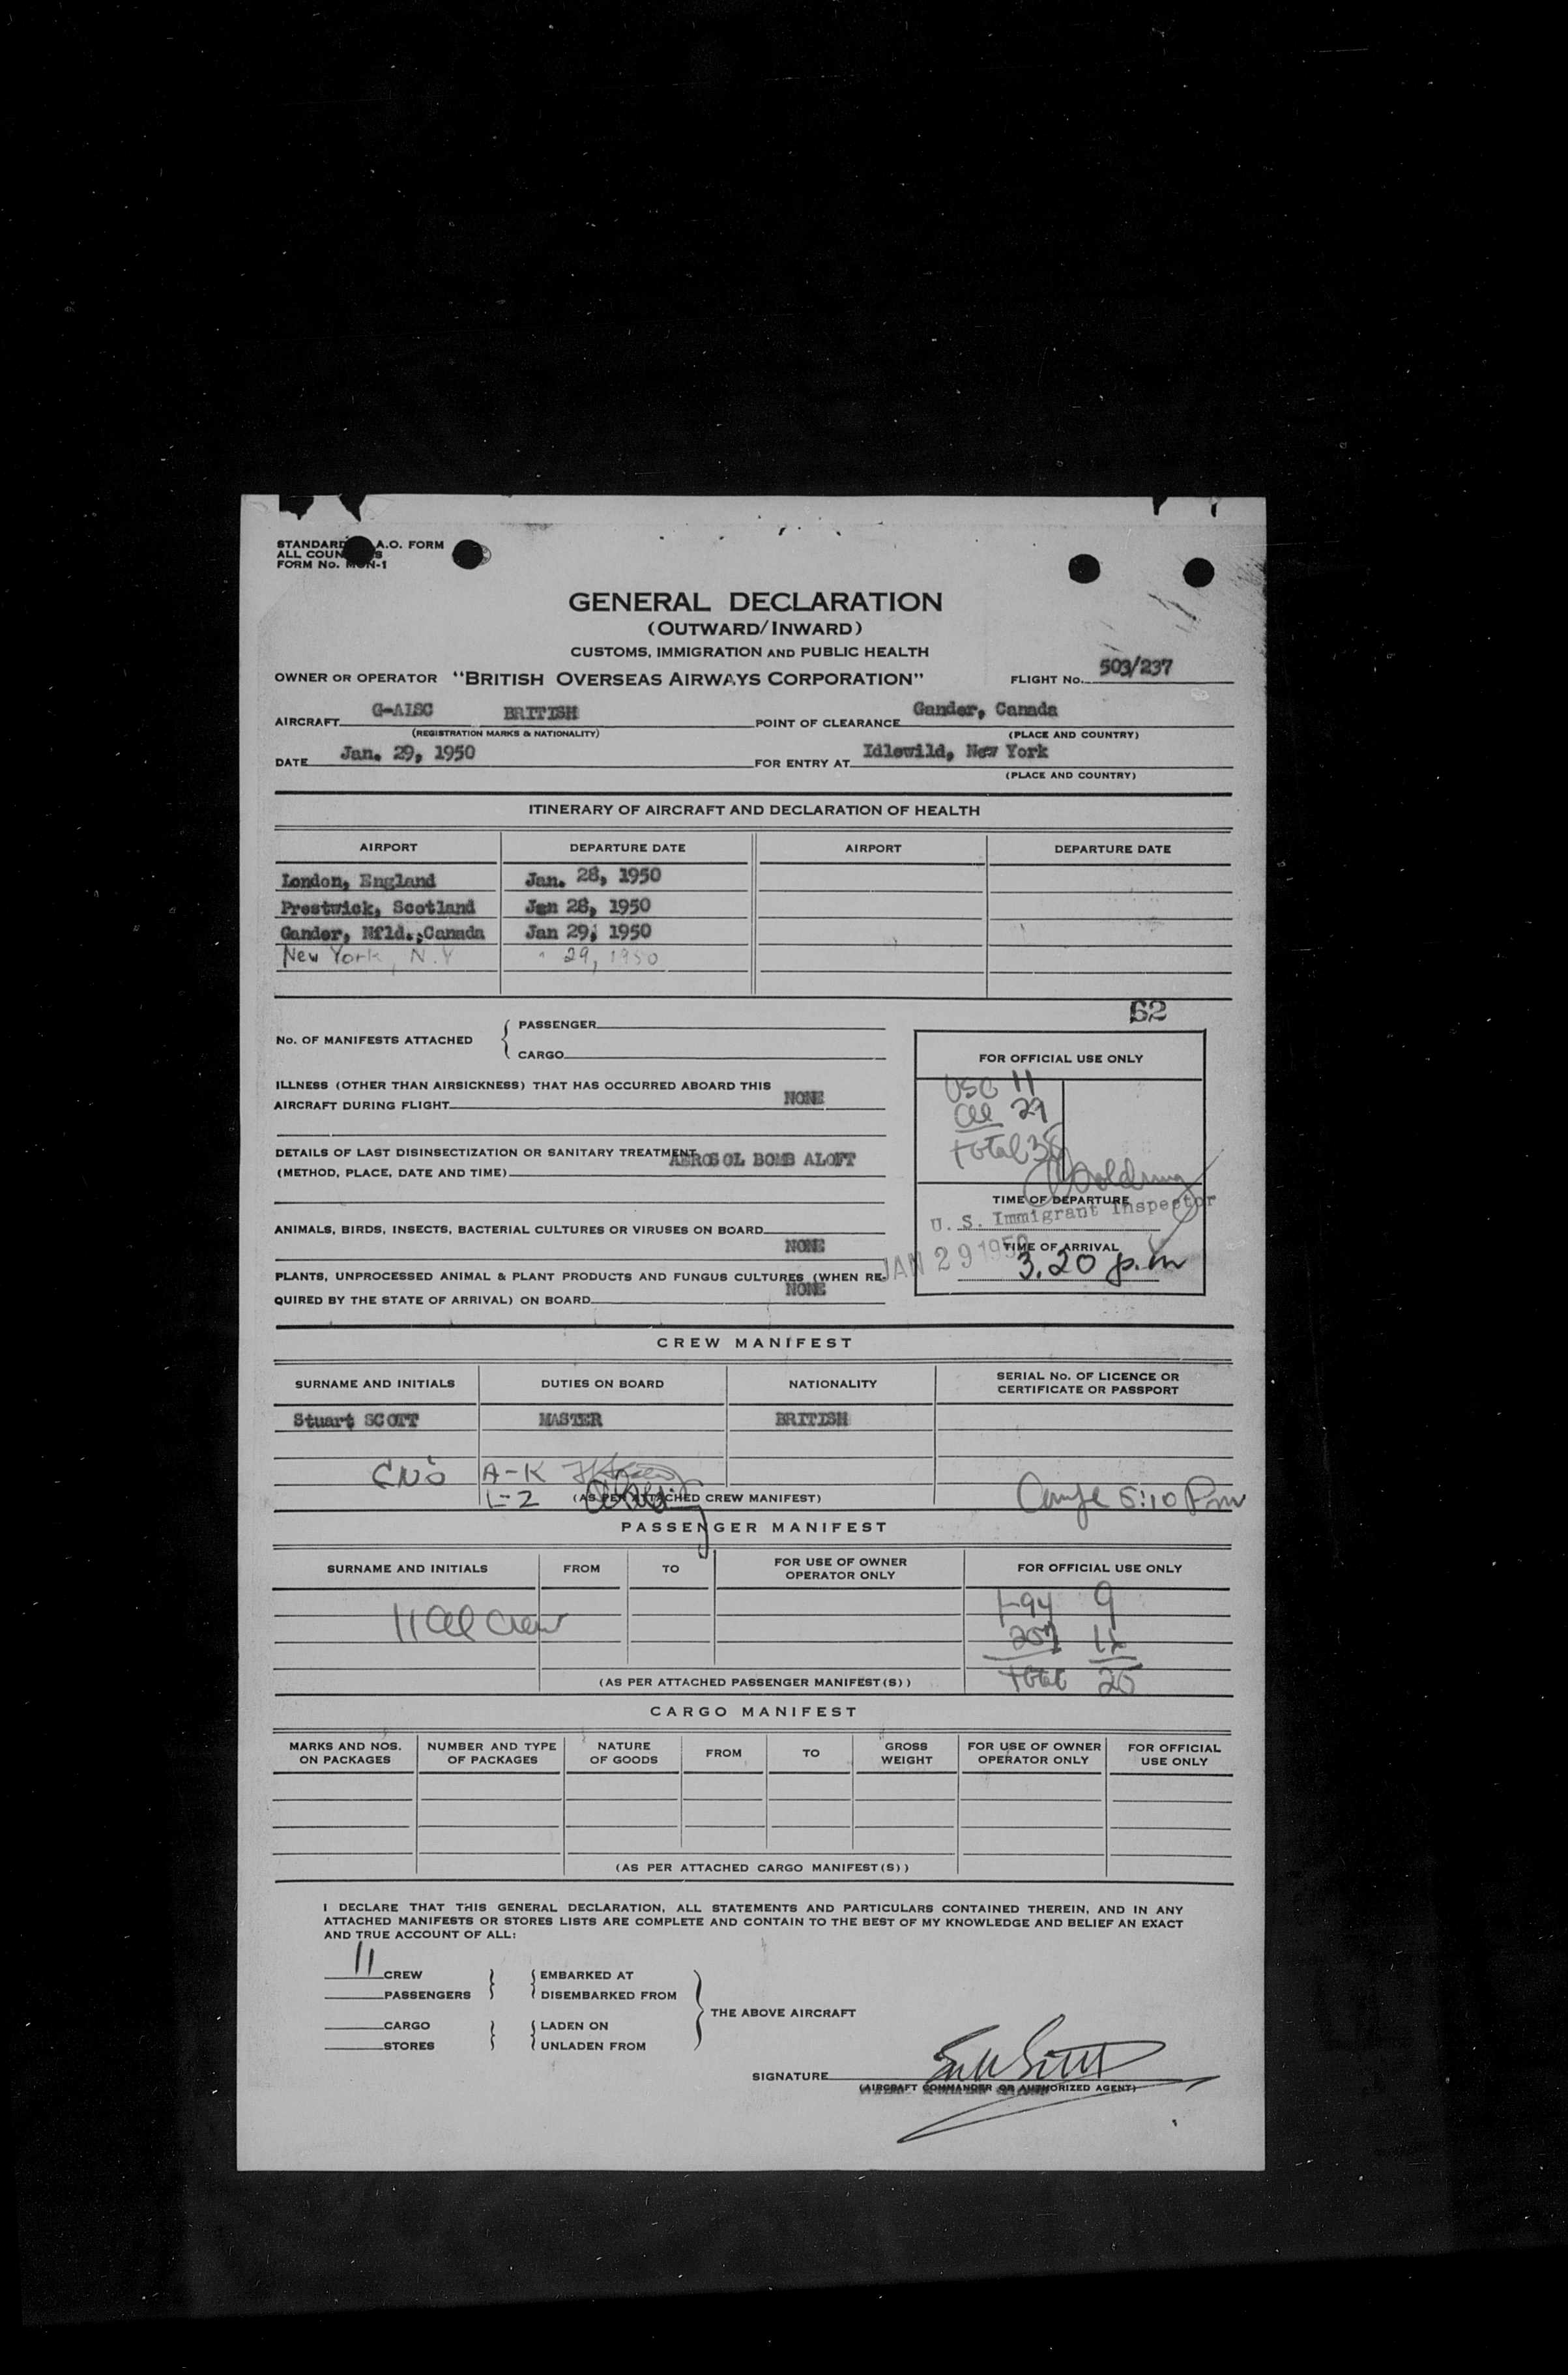 STANDARD A.O. FORM
ALL COUN S
FORM No. MON-1
GENERAL DECLARATION
(OUTWARD/INWARD)
CUSTOMS, IMMIGRATION AND PUBLIC HEALTH
OWNER OR OPERATOR "BRITISH OVERSEAS AIRWAYS CORPORATION" FLIGHT No. 503/237
AIRCRAFT G-AISC BRITISH POINT OF CLEARANCE Gander, Canada
(REGISTRATION MARKS & NATIONALITY) (PLACE AND COUNTRY)
DATE Jan. 29, 1950 FOR ENTRY AT Idlewild, New York
(PLACE AND COUNTRY)
ITINERARY OF AIRCRAFT AND DECLARATION OF HEALTH
AIRPORT DEPARTURE DATE AIRPORT DEPARTURE DATE
London, England Jan. 28, 1950
Prestwick, Scotland Jan 28, 1950
Gander, Nfld.,Canada Jan 29, 1950
New York, N.Y " 29, 1950
62
No. OF MANIFESTS ATTACHED
PASSENGER
CARGO
FOR OFFICIAL USE ONLY
USC 11
29
total
ILLNESS (OTHER THAN AIRSICKNESS) THAT HAS OCCURRED ABOARD THIS
AIRCRAFT DURING FLIGHT NONE
DETAILS OF LAST DISINSECTIZATION OR SANITARY TREATMENT
(METHOD, PLACE, DATE AND TIME) AEROSOL BOMB ALOFT
TIME OF DEPARTURE
U. S. Immigrant Inspector
ANIMALS, BIRDS, INSECTS, BACTERIAL CULTURES OR VIRUSES ON BOARD
NONE
JAN 29 1950
TIME OF ARRIVAL
3.20 p.m
PLANTS, UNPROCESSED ANIMAL & PLANT PRODUCTS AND FUNGUS CULTURES (WHEN RE-
QUIRED BY THE STATE OF ARRIVAL) ON BOARD NONE
CREW MANIFEST
SURNAME AND INITIALS DUTIES ON BOARD NATIONALITY SERIAL No. OF LICENCE OR
CERTIFICATE OR PASSPORT
Stuart SCOTT MASTER BRITISH
A-K
L-Z (AS PER ATTACHED CREW MANIFEST) 5:10 Pm
PASSENGER MANIFEST
SURNAME AND INITIALS FROM TO FOR USE OF OWNER
OPERATOR ONLY FOR OFFICIAL USE ONLY
I-94 9
11 Crew
total 20
(AS PER ATTACHED PASSENGER MANIFEST(S))
CARGO MANIFEST
MARKS AND NOS.
ON PACKAGES NUMBER AND TYPE
OF PACKAGES NATURE
OF GOODS FROM TO GROSS
WEIGHT FOR USE OF OWNER
OPERATOR ONLY FOR OFFICIAL
USE ONLY
(AS PER ATTACHED CARGO MANIFEST(S))
I DECLARE THAT THIS GENERAL DECLARATION, ALL STATEMENTS AND PARTICULARS CONTAINED THEREIN, AND IN ANY
ATTACHED MANIFESTS OR STORES LISTS ARE COMPLETE AND CONTAIN TO THE BEST OF MY KNOWLEDGE AND BELIEF AN EXACT
AND TRUE ACCOUNT OF ALL:
11 CREW EMBARKED AT
PASSENGERS DISEMBARKED FROM
THE ABOVE AIRCRAFT
CARGO LADEN ON
STORES UNLADEN FROM
SIGNATURE
(AIRCRAFT COMMANDER OR AUTHORIZED AGENT)